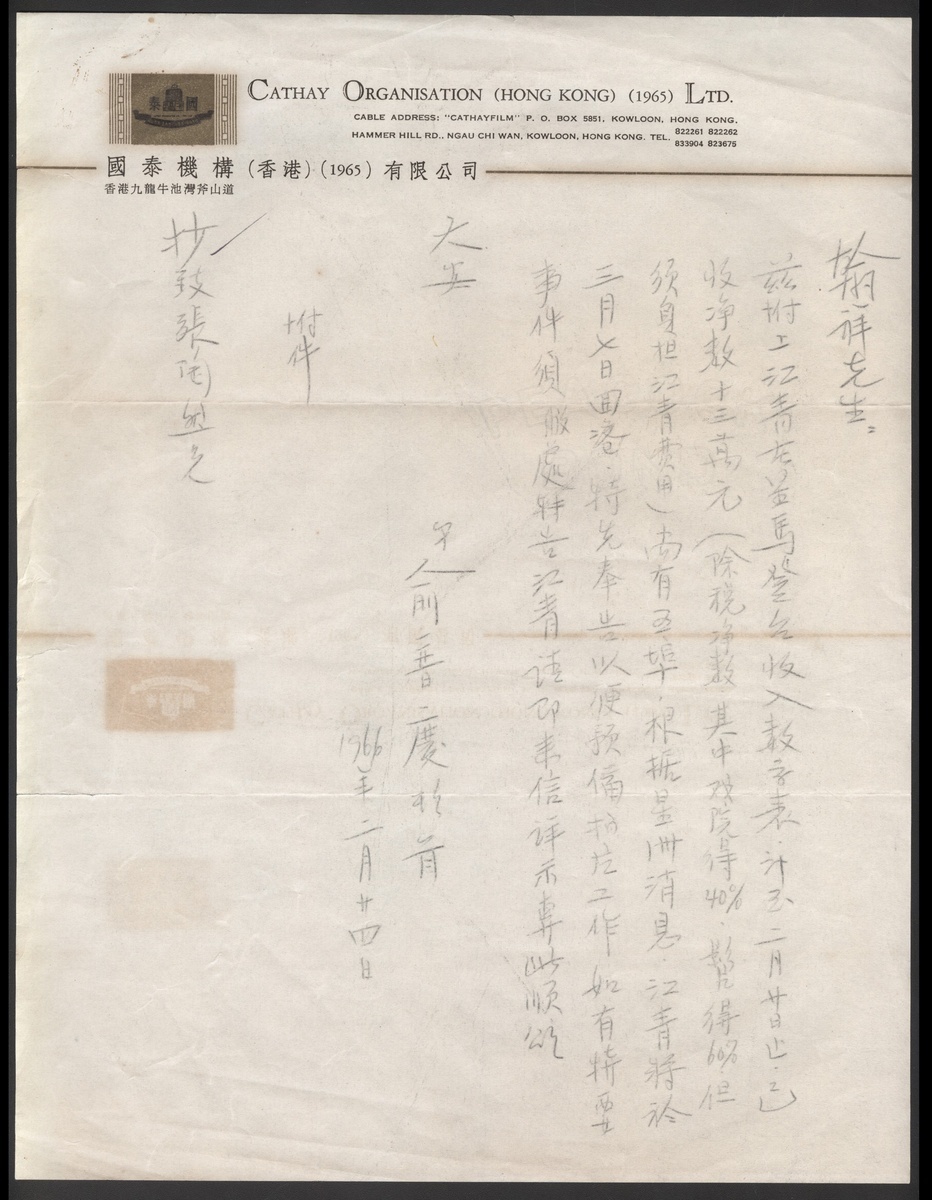 國泰
CATHAY ORGANISATION (HONG KONG) (1965) LTD.
CABLE ADDRESS: "CATHAYFILM" P. O. BOX 5851, KOWLOON, HONG KONG.
HAMMER HILL RD., NGAU CHI WAN, KOWLOON, HONG KONG. TEL. 822261 822262
833904 823675
國泰機構 (香港) (1965) 有限公司
香港九龍牛池灣斧山道
翰祥先生:
茲附上江青在星馬登台收入數字表.計至二月廿日止.已
收净數十三萬元(除稅净數.其中戏院得40%.得60%.但
須身担江青費用)尚有五埠.根据星洲消息.江青將於
三月七日回港.特先奉告以便預備拍片工作.如有特要
事件須服處轉告江青請即來信詳示專此順頌
大安
弟人俞普慶於首
1966年二月廿四日
附件
抄致張陶然兄